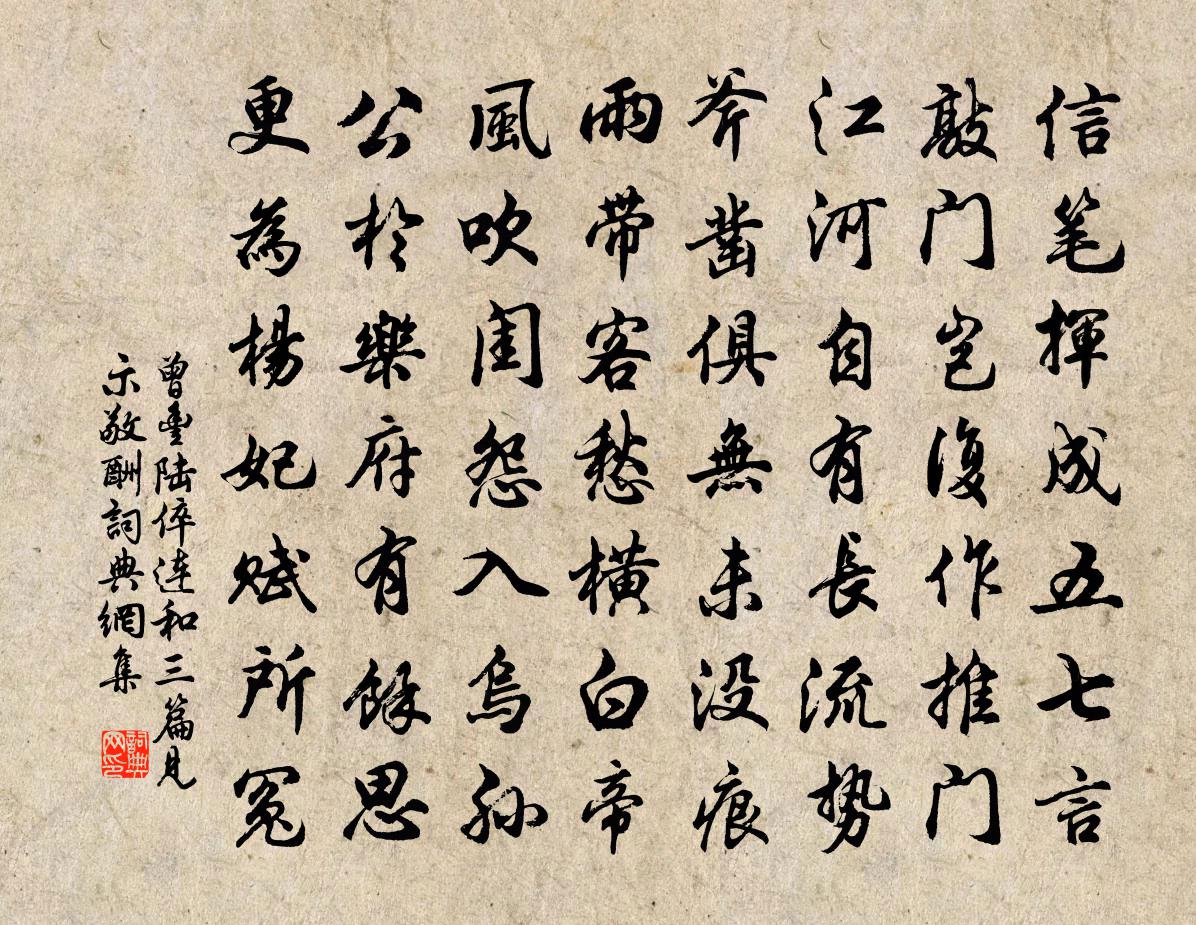 信笔揮成五七言
敲门岂復作推门
江河自有長流势
斧凿俱無未没痕
雨带客愁横白帝
風吹闺怨入烏孙
公於樂府有餘思
更為楊妃赋所冤
曾豊陆倅連和三篇见
示敬酬詞典網集
詞典
网印